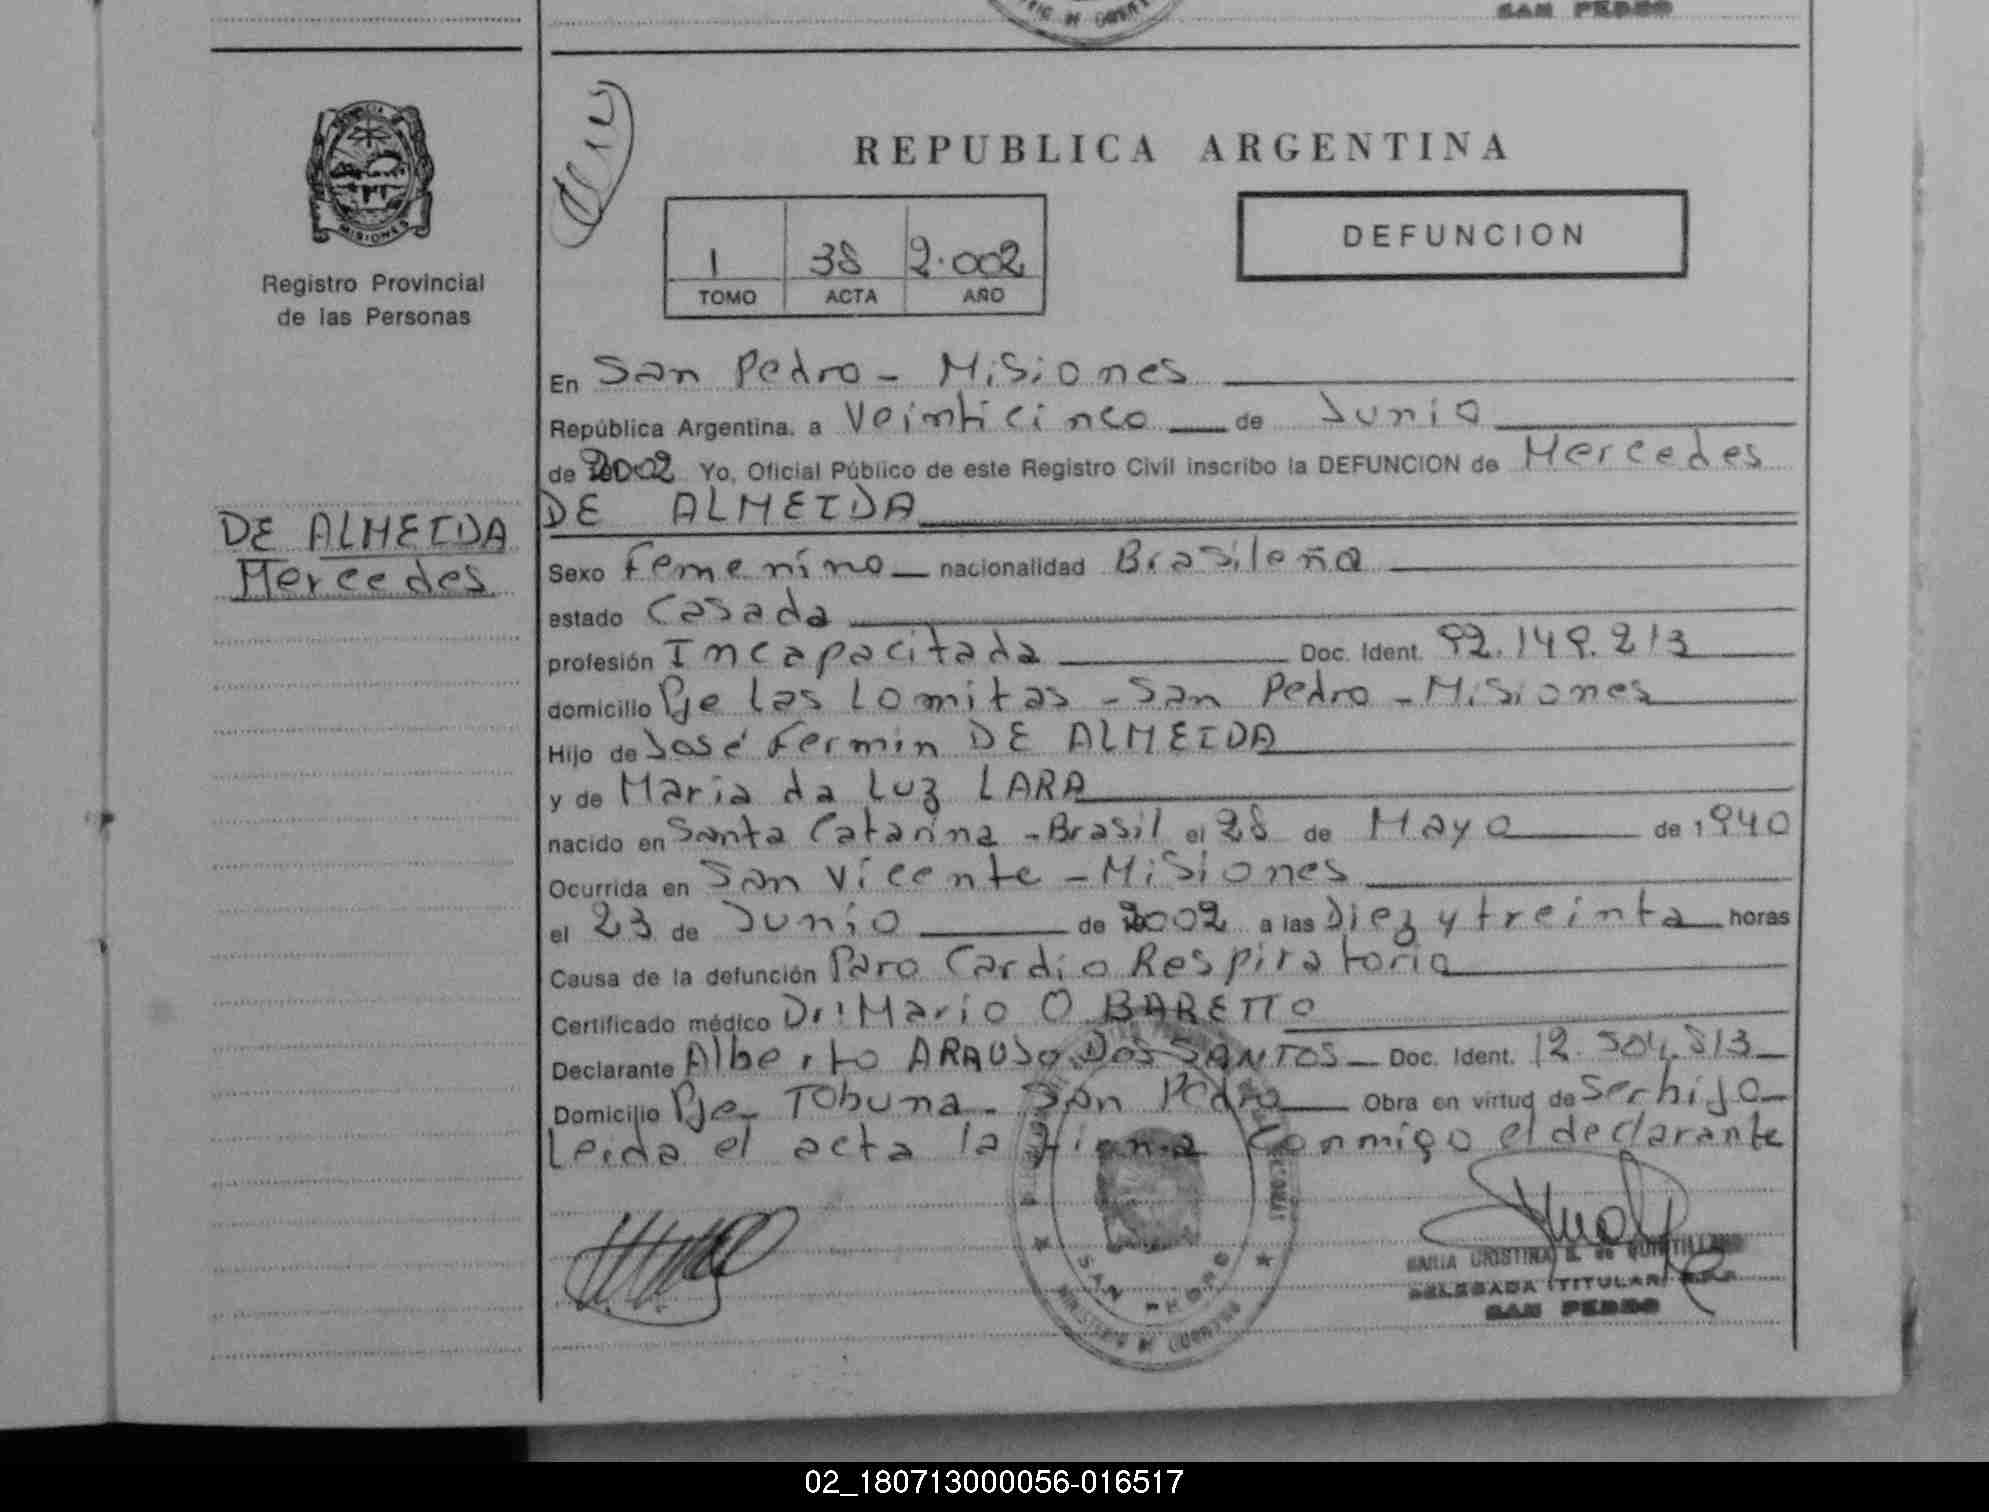 SAN PEDRO
PROVINCIA
MISIONES
Registro Provincial
de las Personas
DE ALMEIDA
Mercedes
REPUBLICA ARGENTINA
1 38 2.002
TOMO ACTA AÑO
DEFUNCION
En San Pedro - Misiones
República Argentina, a Veinticinco de Junio
de 2002 Yo, Oficial Público de este Registro Civil inscribo la DEFUNCION de Mercedes
DE ALMEIDA
Sexo Femenino nacionalidad Brasileña
estado Casada
profesión Incapacitada Doc. Ident. 92.149.213
domicilio Pje Las Lomitas - San Pedro - Misiones
Hijo de José Fermin DE ALMEIDA
y de Maria da Luz LARA
nacido en Santa Catarina - Brasil el 28 de Mayo de 1940
Ocurrida en San Vicente - Misiones
el 23 de Junio de 2002 a las Diez y treinta horas
Causa de la defunción Paro Cardio Respiratorio
Certificado médico Dr: Mario O BARETTO
Declarante Alberto ARAUJO DOS SANTOS Doc. Ident. 12.504.813
Domicilio Pje Tobuna - San Pedro Obra en virtud de Ser hijo
Leida el acta la firma Conmigo el declarante
SAN PEDRO
MINISTERIO DE GOBIERNO
MARIA CRISTINA
DELEGADA TITULAR
SAN PEDRO
02_180713000056-016517